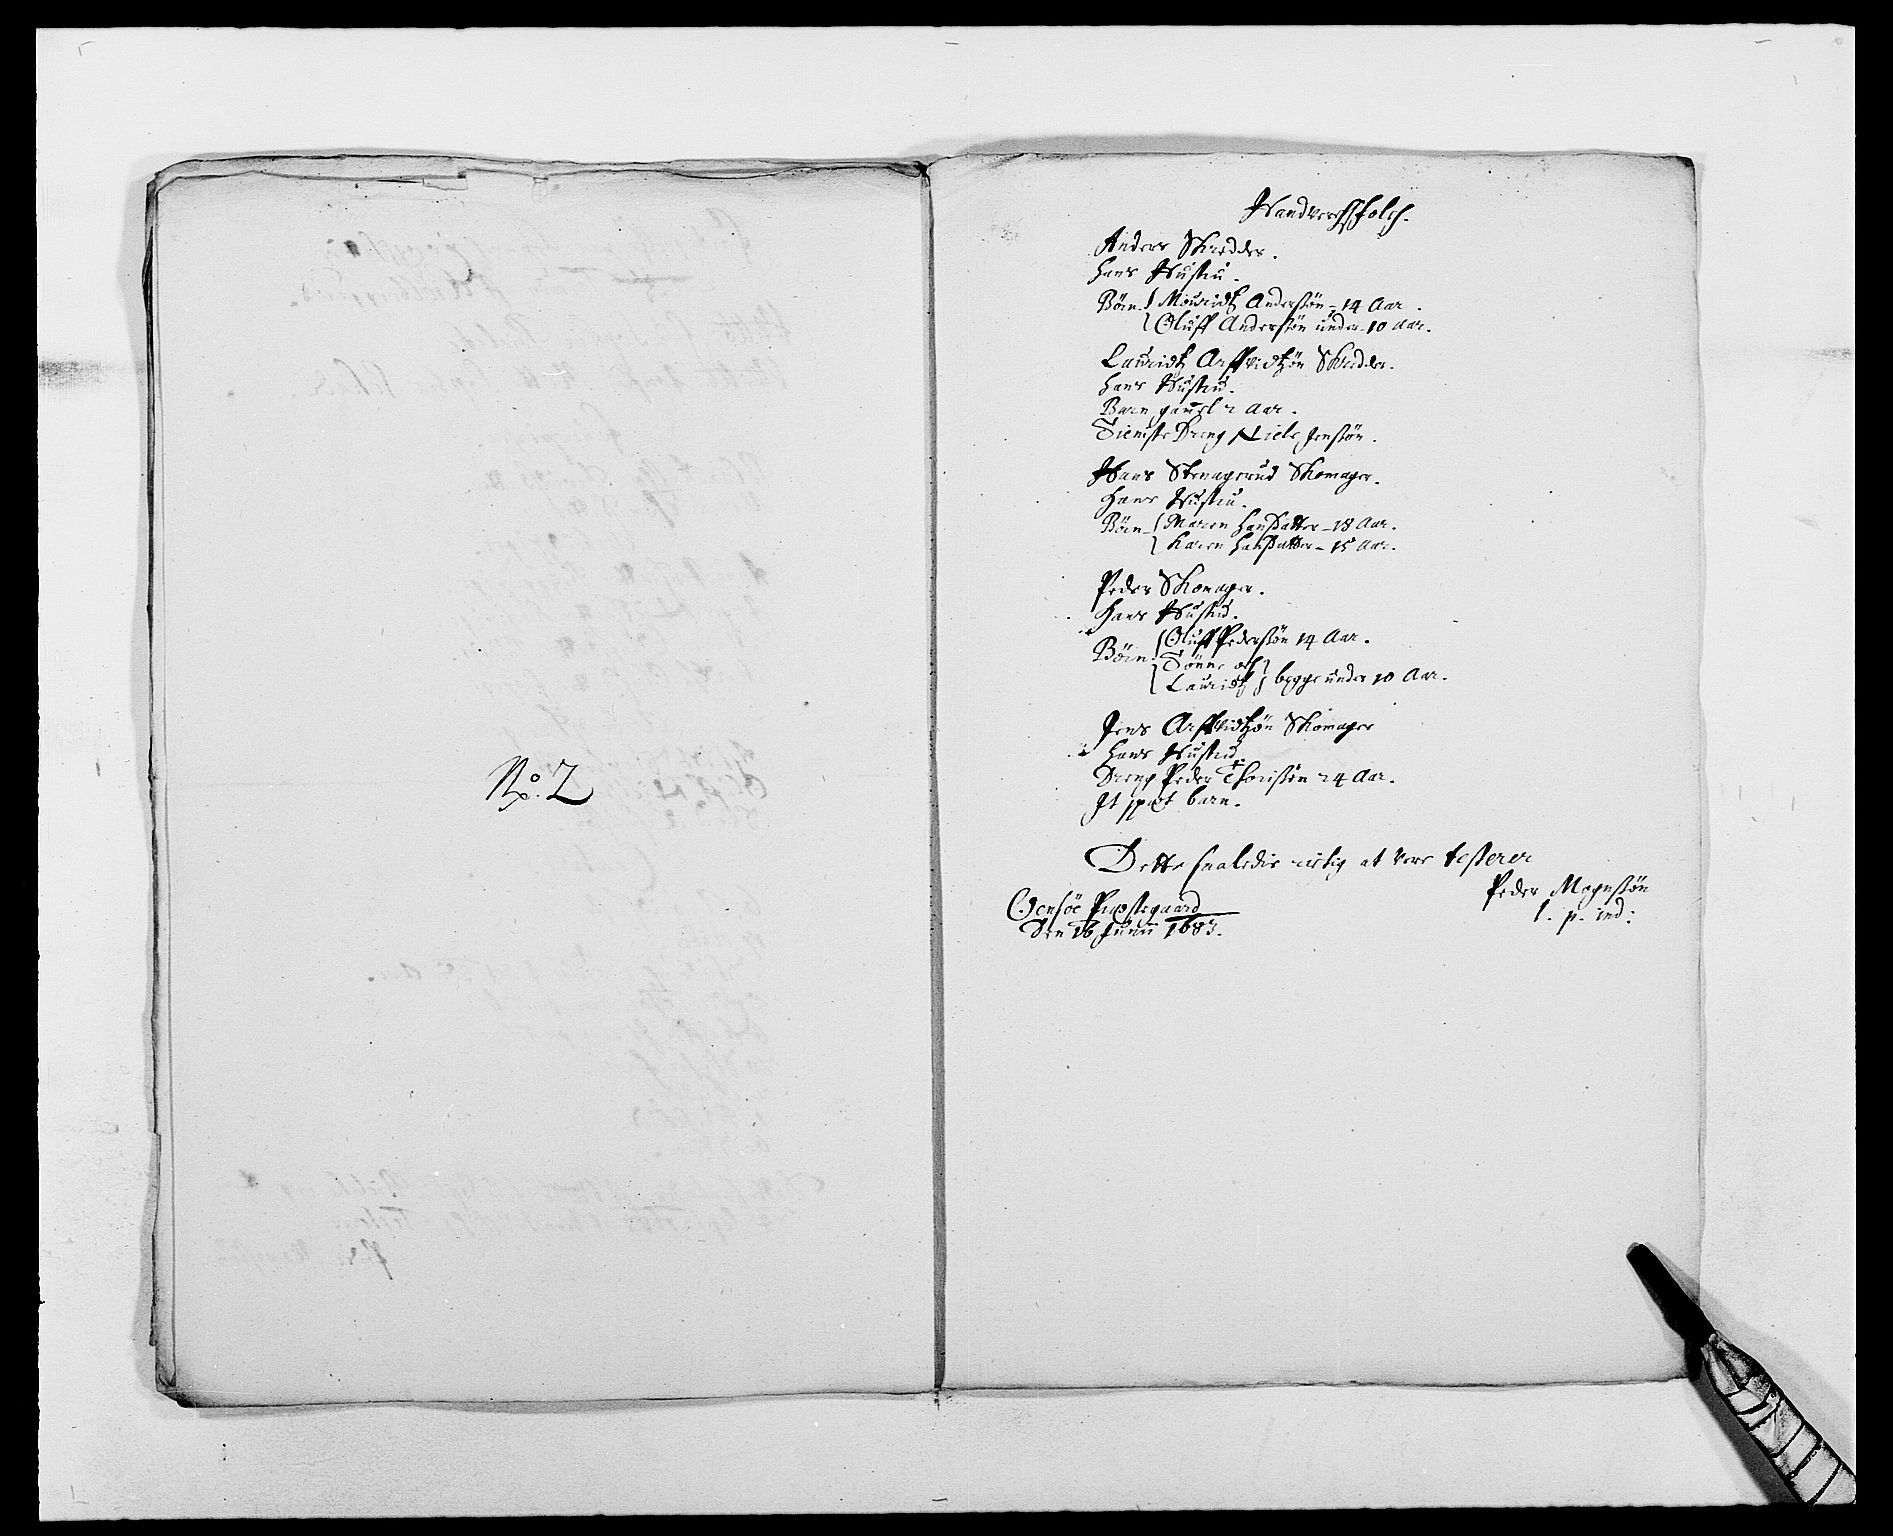 No. 2
Handverchsfolch.
Anders Skredder.
Hans Hustru.
Börn { Mouridtz Andersøn - 14 Aar.
Oluff Andersøn under - 10 Aar.
Lauridtz Arffvidtzøn Skredder.
Hans Hustru.
Barn gamel 2 Aar.
Tieniste Dreng Niels Jensøn.
Hans Stenagerud Skomager.
Hans Hustru.
Börn { Maren Hansdatter - 18 Aar.
Karen Hansdatter - 15 Aar.
Peder Skomager.
Hans Hustru.
Börn { Oluff Pedersøn 14 Aar.
Tønne och
Lauridtz } begge under 10 Aar.
Jens Arffvidtzøn Skomager
Hans Hustru
Dreng Peder Thorisøn 24 Aar.
It spæt barn.
Dette saaledis rictig at vere testerer
Peder Mognsøn
Odensøe Præstegaard
Den 16 Junii 1683.